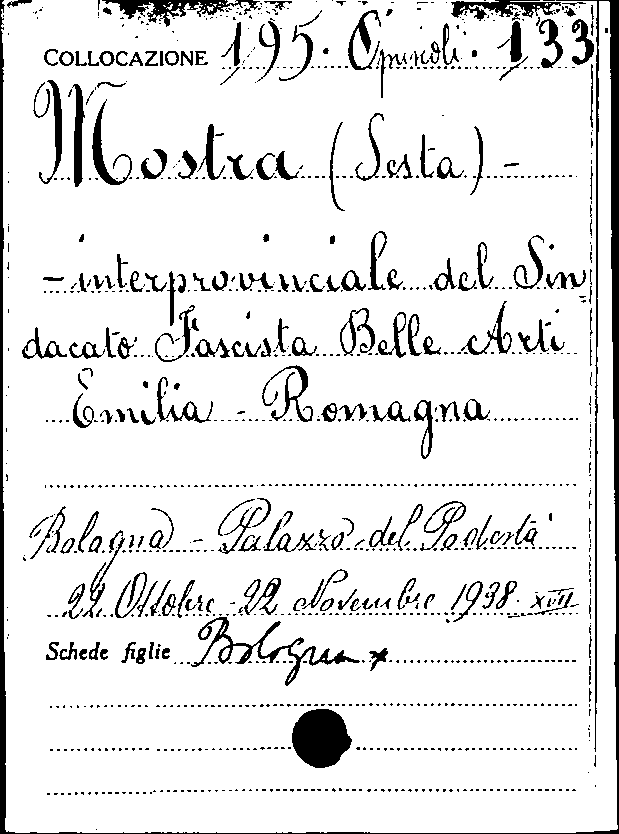 COLLOCAZIONE 195. Opuscoli. 133
Mostra (Sesta) -
- interprovinciale del Sin
dacato Fascista Belle Arti
Emilia - Romagna
Bologna - Palazzo del Podestà
22 Ottobre - 22 Novembre 1938. XVII
Schede figlie Bologna x